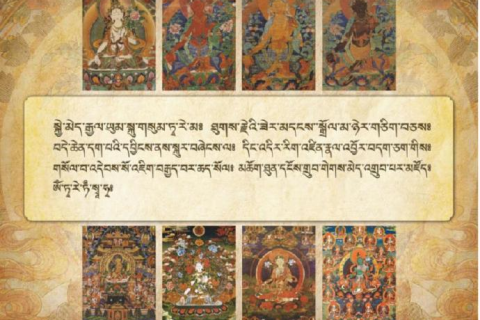 སྐྱེ་མེད་རྒྱལ་ཡུམ་སྐུ་གསུམ་ཏཱ་རེ་མ༔ ཐུགས་རྗེའི་ཟེར་མདངས་སྒྲོལ་མ་ཉེར་གཅིག་བཅས༔
བདེ་ཆེན་དག་པའི་དབྱིངས་ནས་སྐུར་བཞེངས་ལ༔ དིང་འདིར་རིག་འཛིན་རྣལ་འབྱོར་བདག་ཅག་གིས༔
གསོལ་བ་འདེབས་སོ་འཇིག་བརྒྱད་བར་ཆད་སོལ༔ མཆོག་ཐུན་དངོས་གྲུབ་གེགས་མེད་འགྲུབ་པར་མཛོད༔
ཨོཾ་ཏཱ་རེ་ཏཾ་སྭཱ་ཧཱ༔